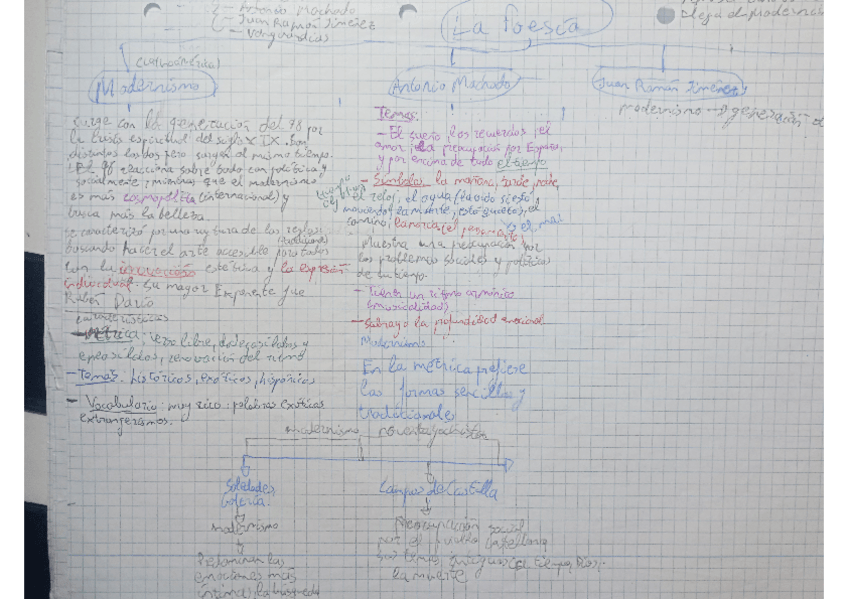 - Antonio Machado
- Juan Ramón Jiménez
- Vanguardias
La Poesía
deja el modernis
Modernismo
Antonio Machado
Juan Ramón Jiménez
modernismo → generación d
surge con la generación del 98 por
la crisis espiritual del siglo XIX. Son
distintos los dos pero surgen al mismo tiempo.
El 98 reacciona sobre todo con política y
socialmente, mientras que el modernismo
es más cosmopolita (internacional) y
busca más la belleza.
se caracterizó por una ruptura de las reglas
buscando hacer el arte accesible para todos
con la innovación estética y la expresión
individual. Su mayor Exponente fue
Rubén Darío
características
- Métrica: verso libre, dodecasílabos y
eneasílabos, renovación del ritmo
- Temas: históricos, exóticos, hispánicos
- Vocabulario: muy rico: palabras exóticas
extranjerismos.
Temas:
- El sueño, los recuerdos, el
amor, la preocupación por España,
y por encima de todo el tiempo
- Símbolos: la mañana, tarde, noche,
el reloj, el agua (la vida si está
moviendo, la muerte, está quieto), el
camino,
es el mar
Muestra una preocupación por
los problemas sociales y políticos
de su tiempo.
- Tienen un ritmo armónico
(musicalidad)
- Subraya la profundidad emocional
Modernismo
En la métrica prefiere
las formas sencillas y
tradicionales
modernismo noventayochista
Soledades
Galerías.
Campos de Castilla
modernismo
Preocupación social
por el pueblo castellano
sus temas tiempo, Dios,
la muerte
Predominan las
emociones más
íntimas, la búsqueda